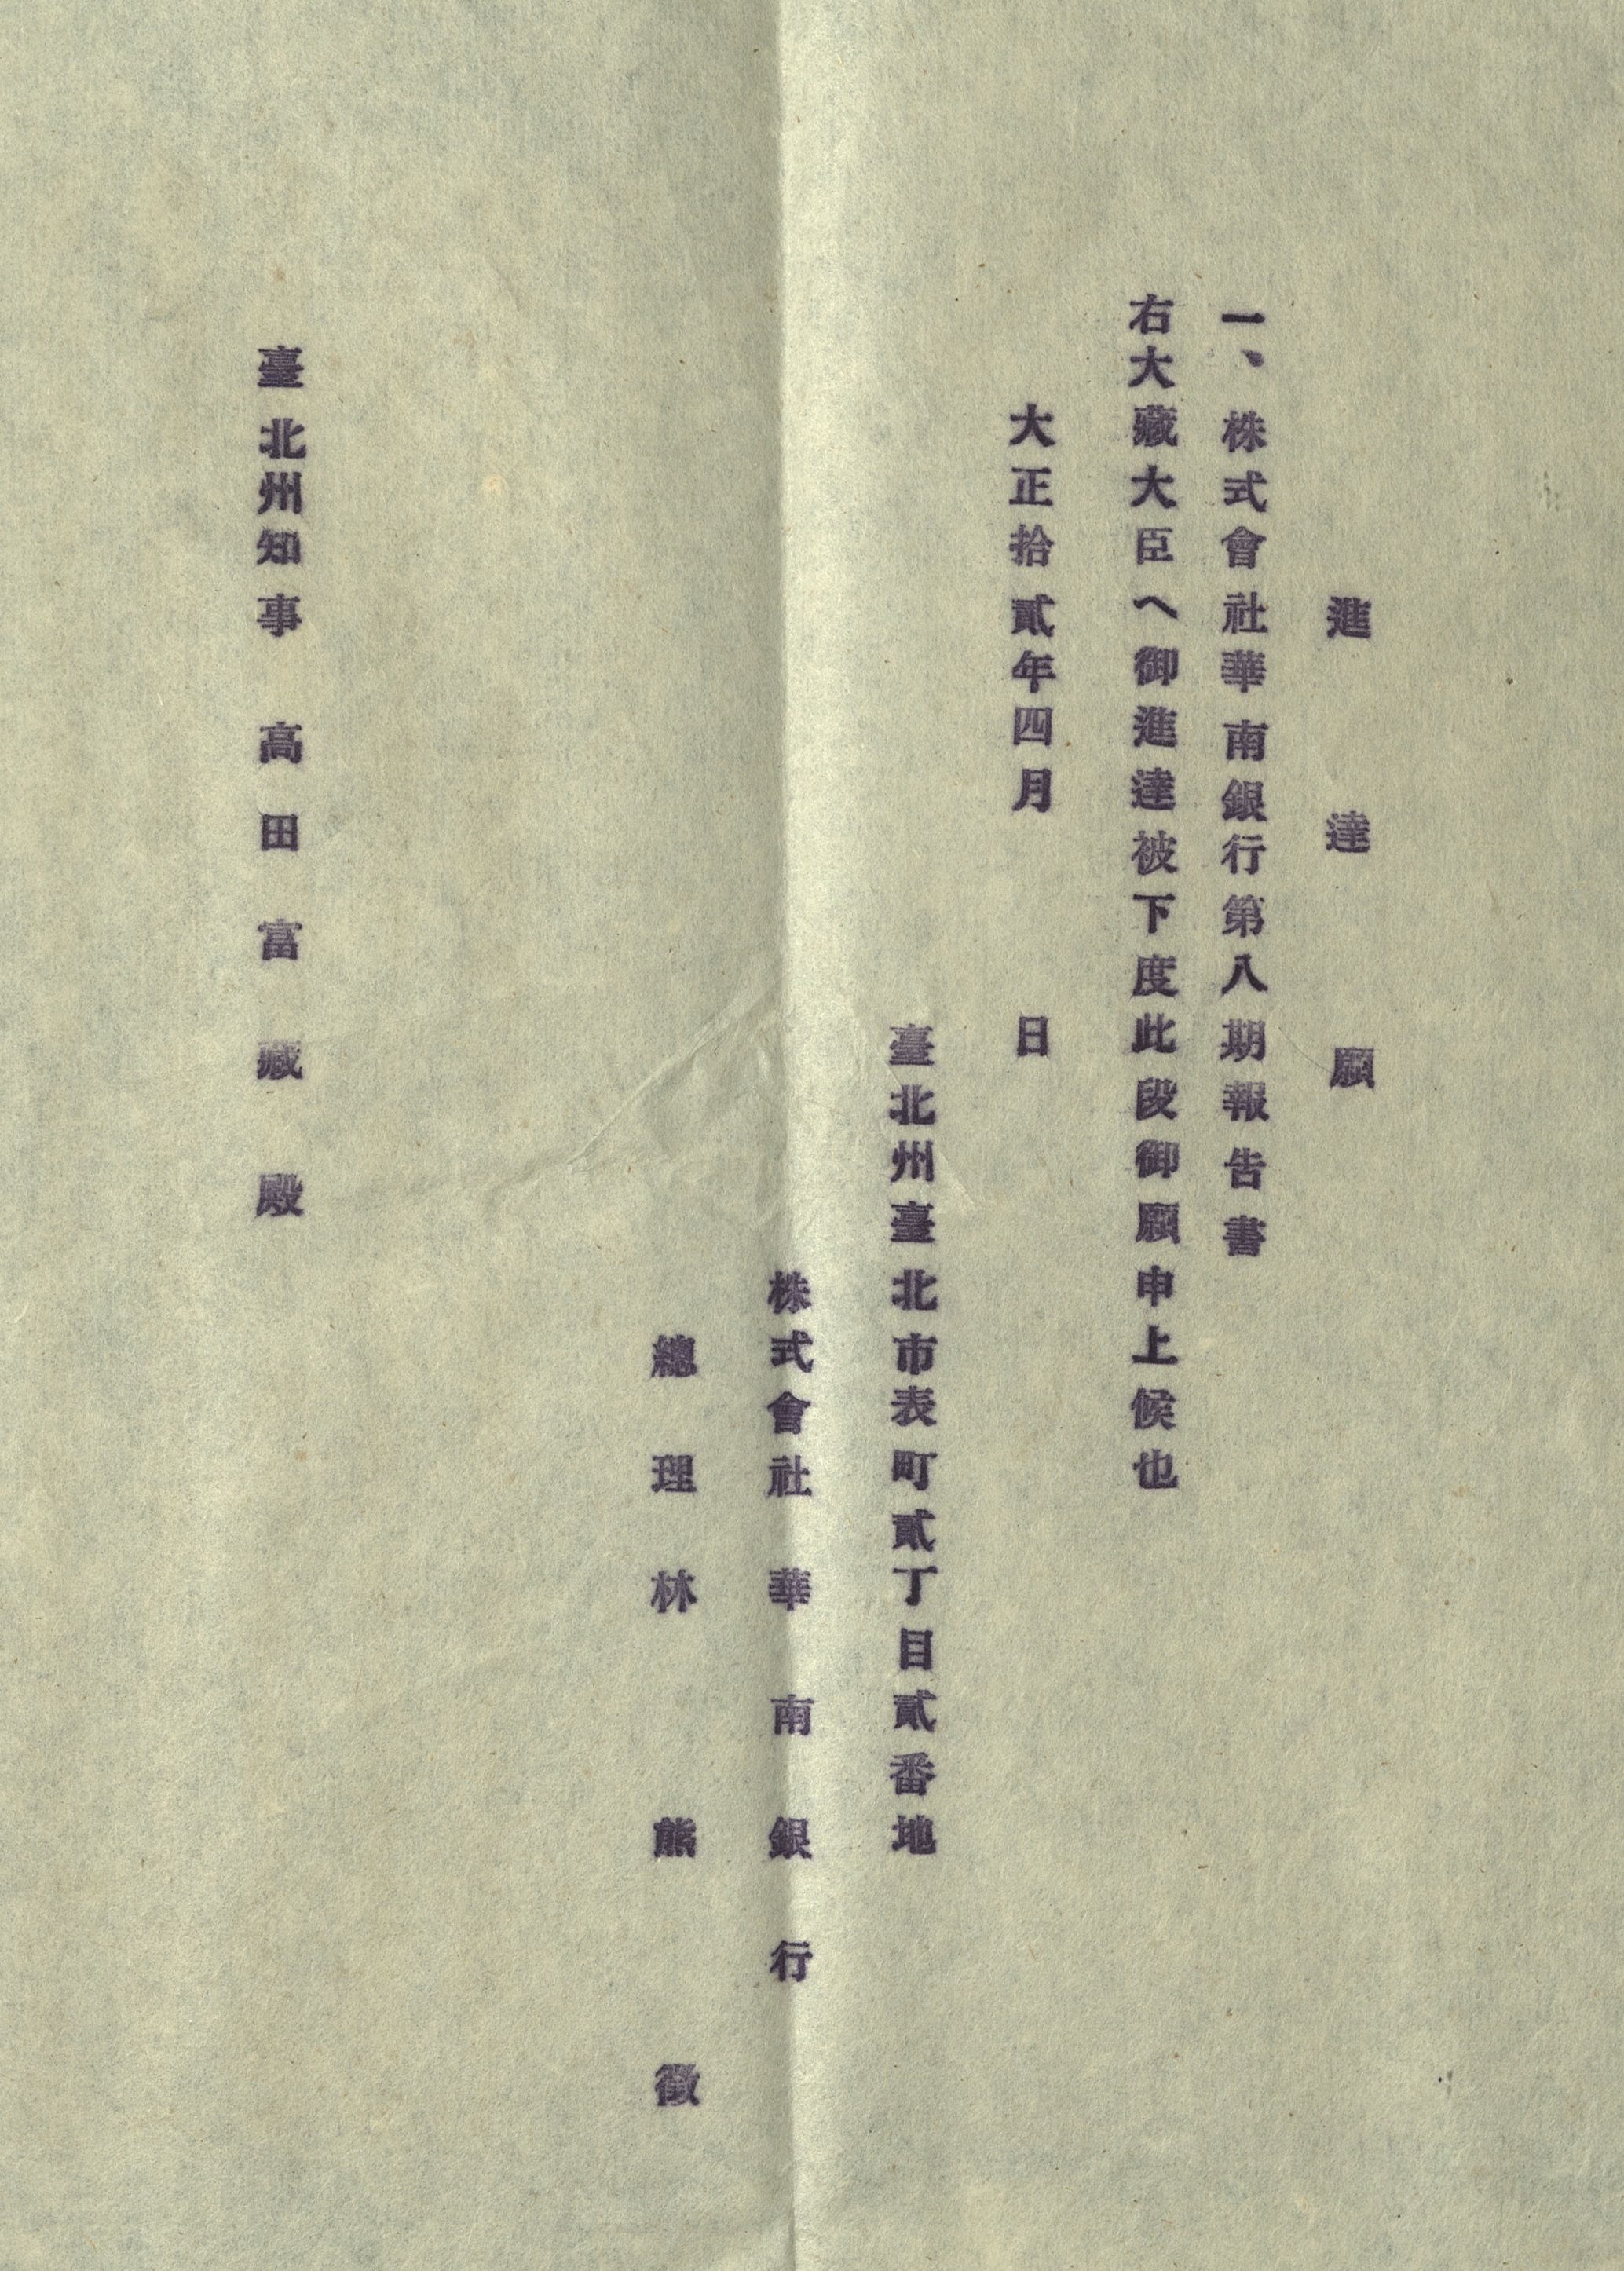 進達願
一、株式會社華南銀行第八期報告書
右大藏大臣へ御進達被下度此段御願申上候也
大正拾貳年四月　　日
臺北州臺北市表町貳丁目貳番地
株式會社華南銀行
總理林熊徵
臺北州知事　高田富藏殿